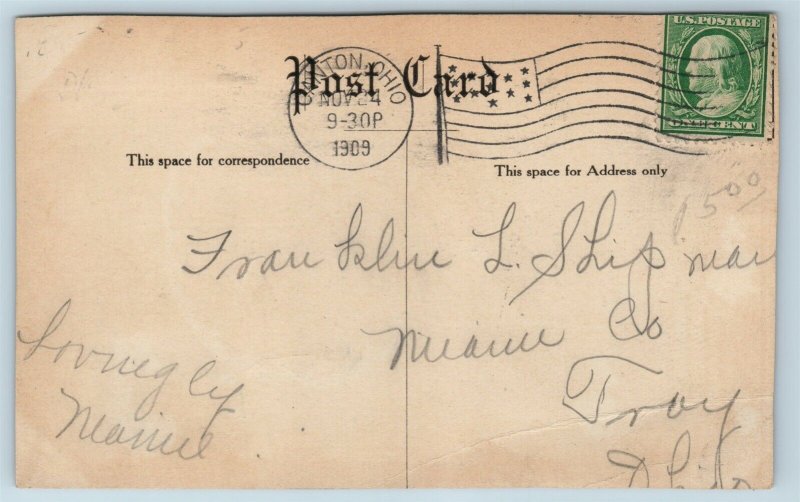 U.S. POSTAGE
Post Card
CANTON, OHIO
NOV 24
9-30P
1909
ONE CENT
This space for correspondence
This space for Address only
500
Franklin L. Shipman
Miami Co
Troy
Ohio
Lovingly
Mamie